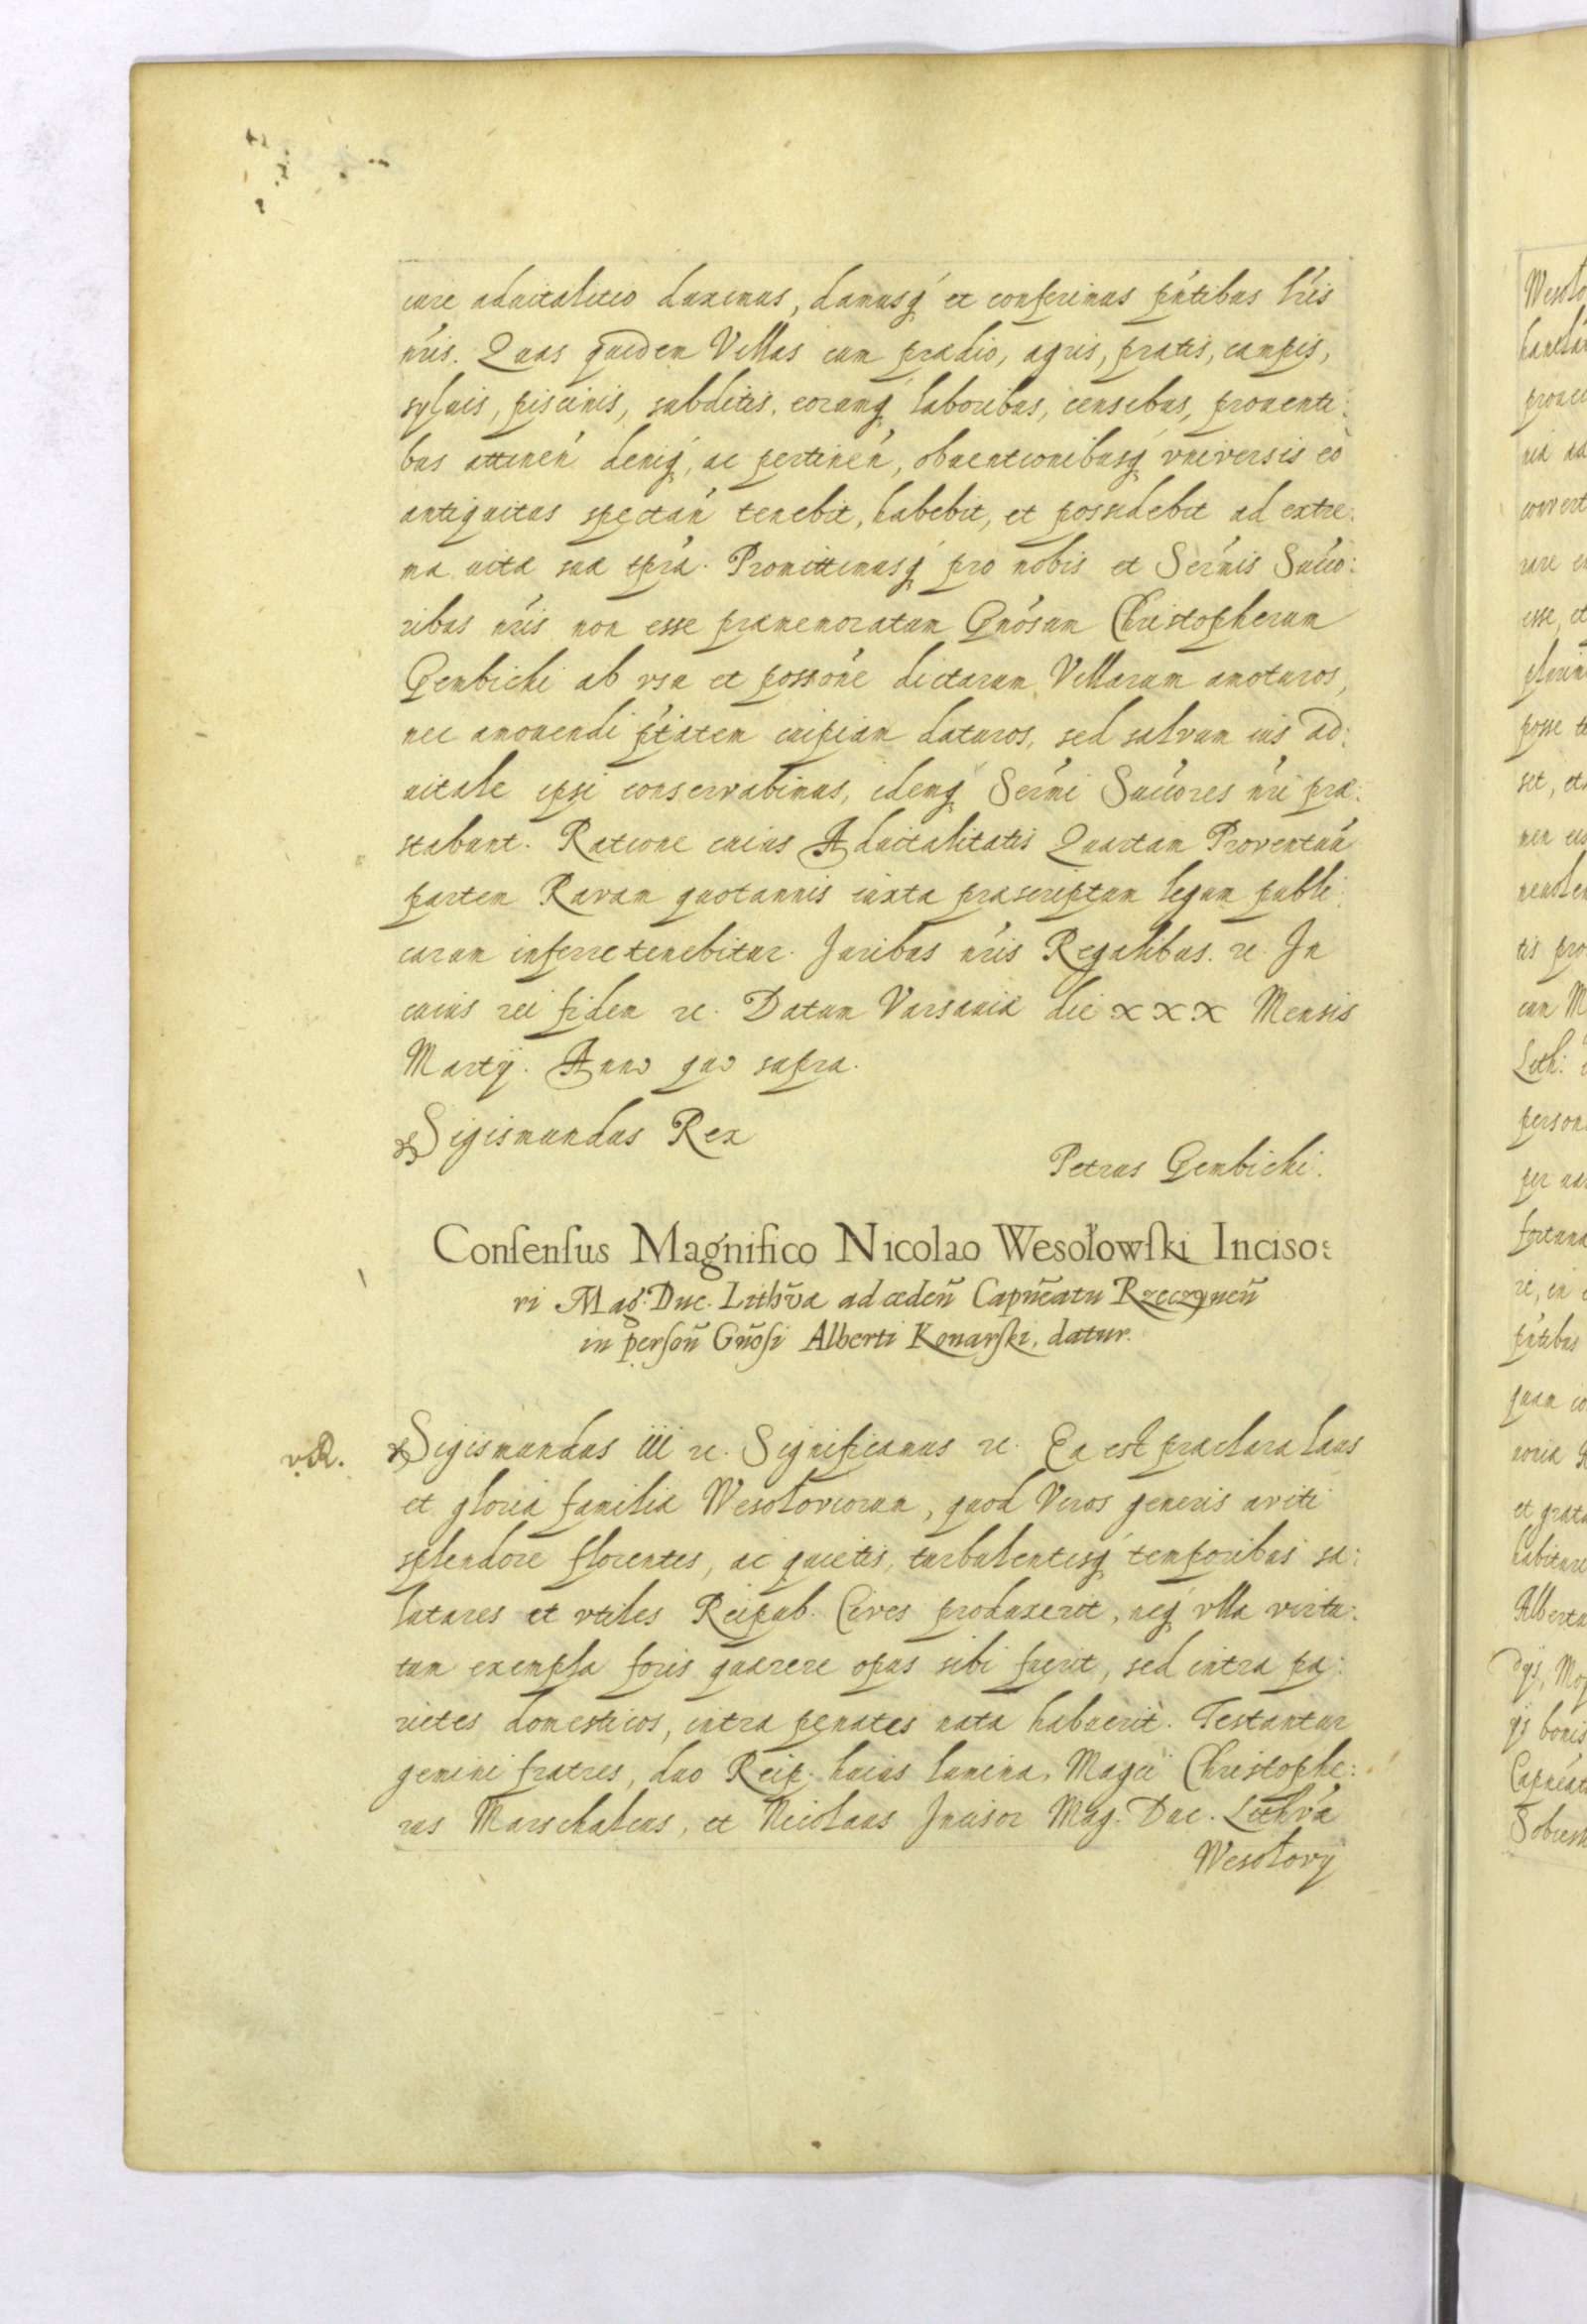 iure aduitalitio duximus, damusq́ et conferimus pńtibus lŕis
nŕis. Quas quidem Villas cum prædio, agris, pratis, campis,
syluis, piscinis, subditis, eorumq́ laboribus, censibus, prouenti:
bus attineń deniq́, ac pertineń, obuentionibusq́ vniversis eò
antiquitus spectań tenebit, habebit, et possidebit ad extre:
ma uitæ suæ tpŕa. Promittimusq́ pro nobis et Serḿis Succo:
ribus nŕis non esse præmemoratum Gnósum Christopherum
Gembicki ab vsu et possońe dictarum Villarum amoturos,
nec amouendi pt́atem cuipiam daturos, sed salvum ius ad:
uitale ipsi conservabimus, idemq́ Serḿi Succóres nŕi præ:
stabunt. Ratione cuius Aduitalitatis Quartam Proventuú
partem Ravam quotannis iuxta præscriptum legum publi:
carum inferre tenebitur. Juribus nŕis Regalibus. &c. In
cuius rei fidem &c. Datum Varsauiæ die XXX Mensis
Martij. Anno quo supra.
Sigismundus Rex
Petrus Gembicki.
Consensus Magnifico Nicolao Wesołowski Inciso:
ri Mag. Duc. Lithũæ ad cedeñ Capñeatu Rzeczyneñ
in persoñ Gñosi Alberti Konarski, datur.
Sigismundus iii &c. Significamus &c. Ea est præclara laus
et gloria familiæ Wesoloviorum, quod Viros generis aviti
splendore florentes, ac quietis, turbulentisq́ temporibus sa:
lutares et vtiles Reipub. Cives produxerit, neq́ vlla virtu:
tum exempla foris quærere opus sibi fuerit, sed intra pa:
rietes domesticos, intra penates nata habuerit. Testantur
gemini fratres, duo Reip. huius lumina, Magci Christophe:
rus Marschalcus, et Nicolaus Incisor Mag. Duc. Lithv́æ
Wesolovij